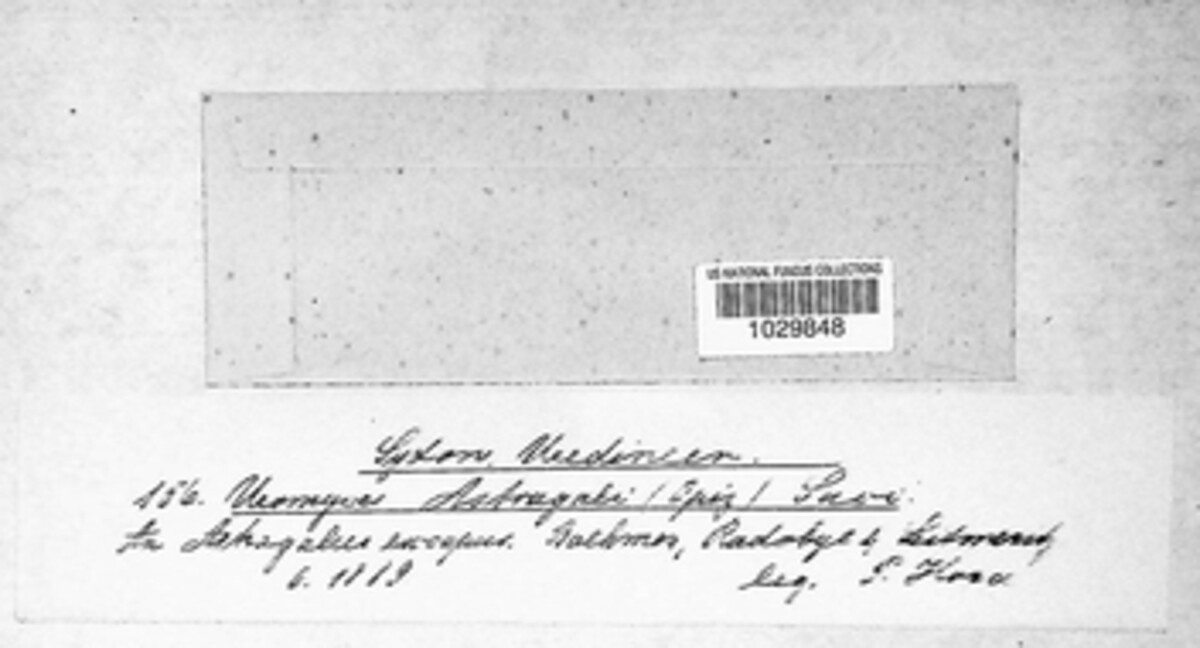 US NATIONAL FUNGUS COLLECTIONS
1029848
Sydow, Uredineen.
156. Uromyces Astragali (Opiz) Sacc.
In Astragalus exscapus. Boehmen, Radobyl b, Leitmeritz,
6. 1889 leg. P. Hora